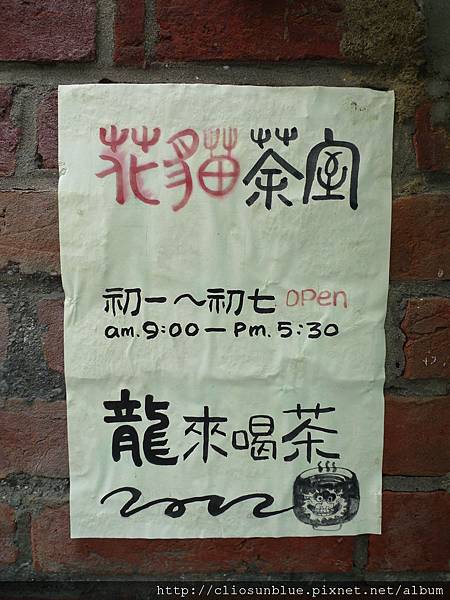 花貓茶室
初一～初七 open
am. 9:00 — Pm. 5:30
龍來喝茶
2012
http://cliosunblue.pixnet.net/album